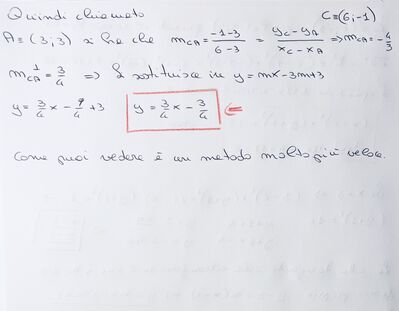 Quindi chiamato C≡(6;-1)
A≡(3;3) si ha che m_CA = (-1-3)/(6-3) = (y_C-y_A)/(x_C-x_A) ⇒ m_CA = -4/3
m_CA^⊥ = 3/4 ⇒ Si sostituisce in y=mx-3m+3
y=3/4x-9/4+3 y=3/4x-3/4 ⇐
Come puoi vedere è un metodo molto più veloce.